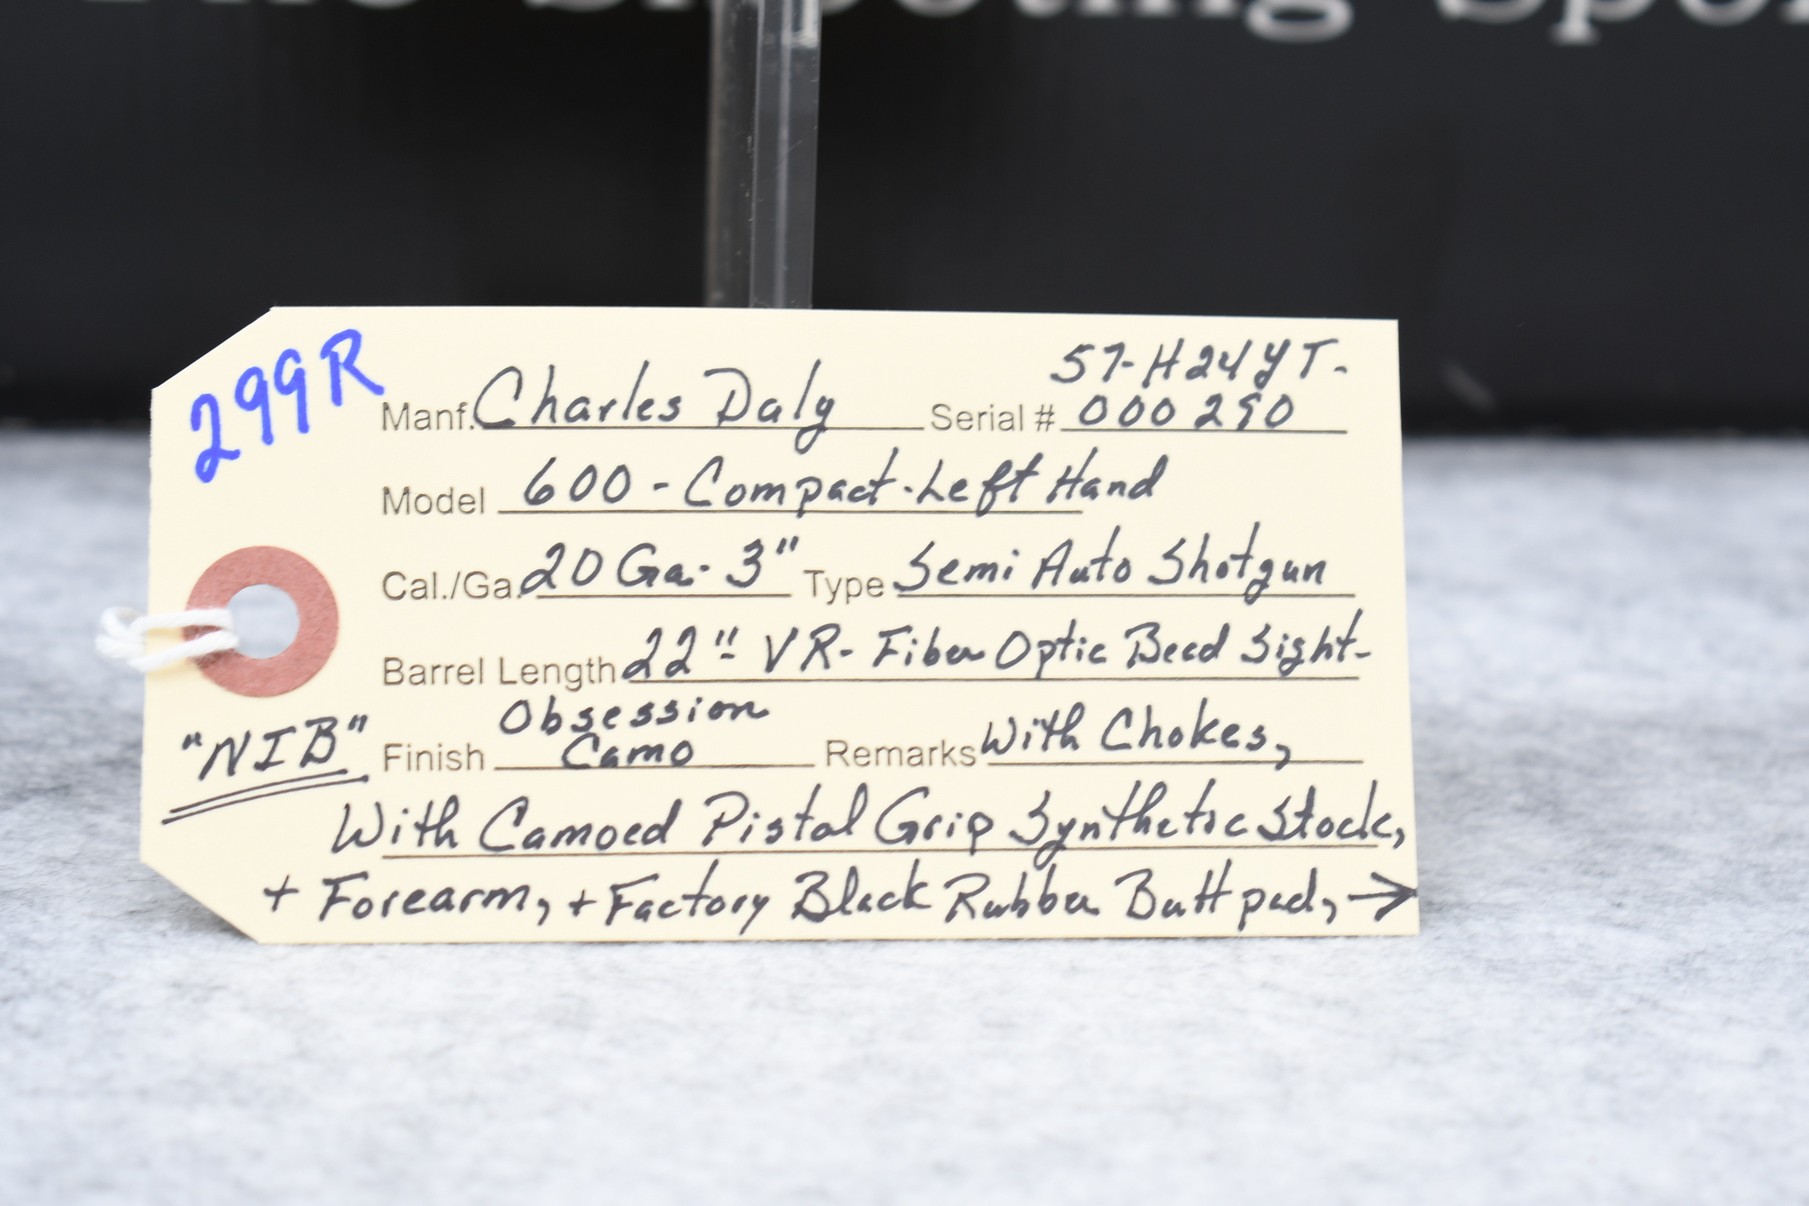 The Shooting Spor
299R
Manf. Charles Daly Serial # 57-H24YT-000290
Model 600-Compact-Left Hand
Cal./Ga. 20 Ga-3" Type Semi Auto Shotgun
Barrel Length 22"- VR- Fiber Optic Bead Sight-
"NIB" Finish Obsession Camo Remarks With Chokes,
With Camoed Pistol Grip Synthetic Stock,
+ Forearm, + Factory Black Rubber Buttpad, →